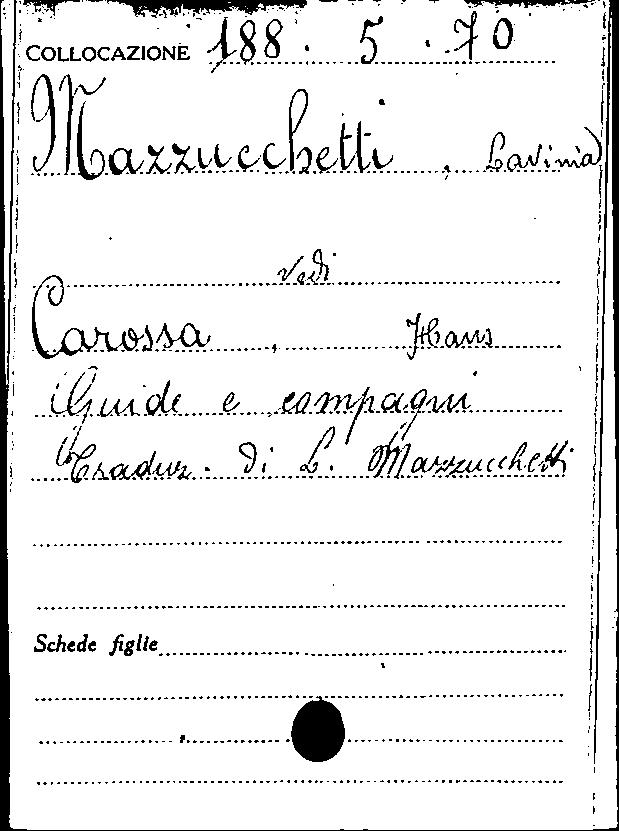 COLLOCAZIONE 188. 5. 70
Mazzucchetti, Lavinia
vedi
Carossa, Hans
Guide e compagni
Traduz. di L. Mazzucchetti
Schede figlie